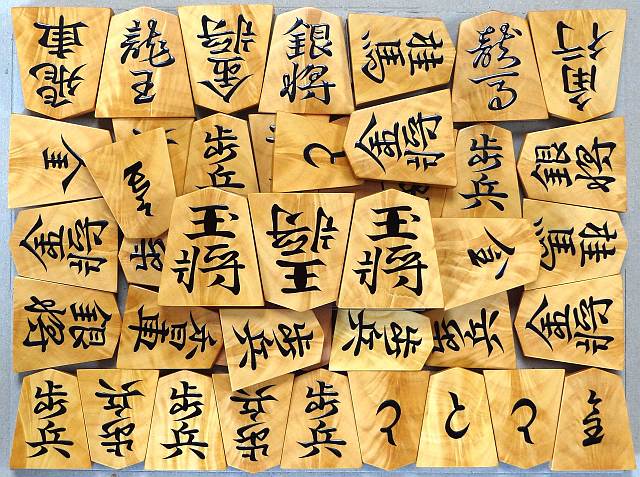 飛車
龍王
金将
銀将
桂馬
龍馬
角行
歩兵
と
金将
歩兵
銀将
金将
王将
玉将
王将
桂馬
銀将
香車
歩兵
歩兵
歩兵
金将
歩兵
歩兵
歩兵
歩兵
歩兵
と
と
と